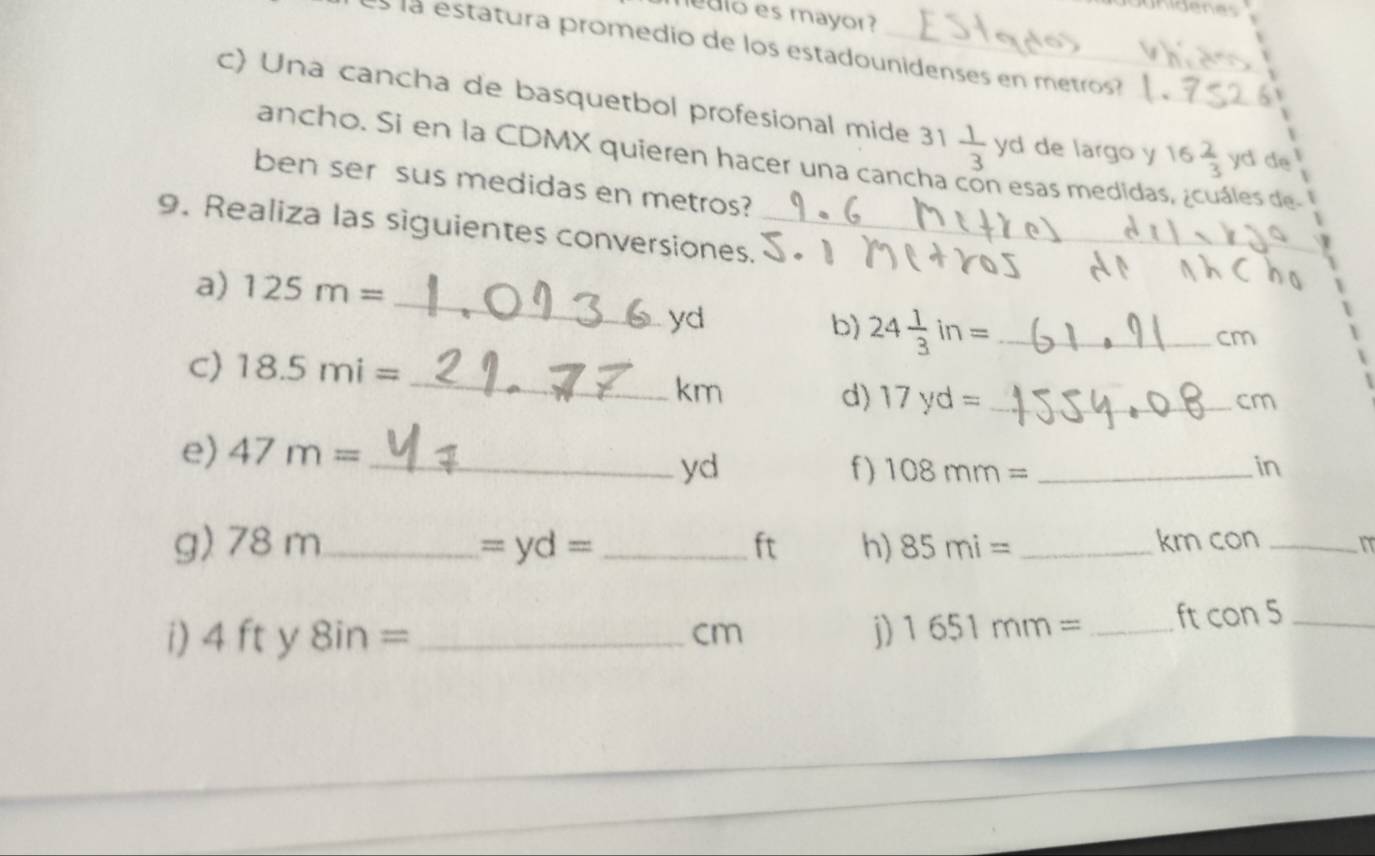 es mayor? Estados Unidos
es la estatura promedio de los estadounidenses en metros? 1.7526
c) Una cancha de basquetbol profesional mide 31 1/3 yd de largo y 16 2/3 yd de
ancho. Si en la CDMX quieren hacer una cancha con esas medidas, ¿cuáles de-
ben ser sus medidas en metros? 9.6 metros de largo
9. Realiza las siguientes conversiones. 5.1 metros de ancho
a) 125 m = 1.0936 yd b) 24 1/3 in = 61.91 cm
c) 18.5 mi = 29.77 km d) 17 yd = 1554.08 cm
e) 47 m = 47 yd f) 108 mm = ____ in
g) 78 m ____ = yd = ____ ft h) 85 mi = ____ km con ____
i) 4 ft y 8in = ____ cm j) 1 651 mm = ____ ft con 5 ____